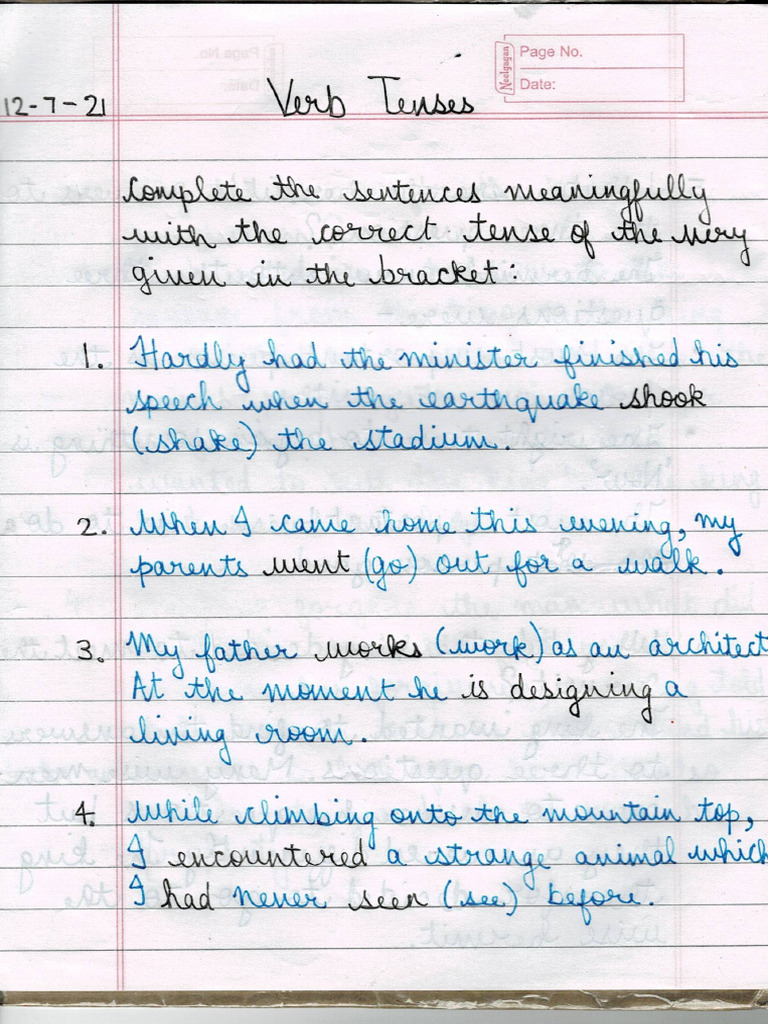 Neelgagan
Page No.
Date:
12-7-21
Verb Tenses
Complete the sentences meaningfully
with the correct tense of the very
given in the bracket:
1. Hardly had the minister finished his
speech when the earthquake shook
(shake) the stadium.
2. When I came home this evening, my
parents went (go) out for a walk.
3. My father works (work) as an architect
At the moment he is designing a
living room.
4. While climbing onto the mountain top,
I encountered a strange animal which
I had never seen (see) before.